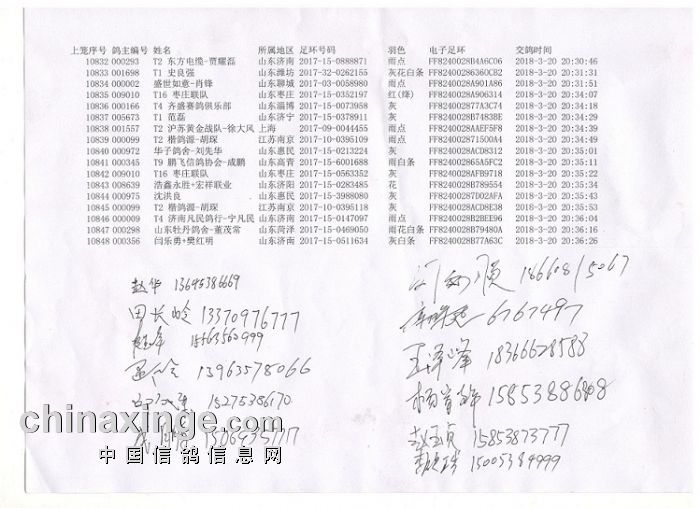 上笼序号 鸽主编号 姓名 所属地区 足环号码 羽色 电子足环 交鸽时间
10832 000293 T2 东方电缆-贾耀磊 山东济南 2017-15-0888871 雨点 FF8240028B4A6C06 2018-3-20 20:30:46
10833 001698 T1 史良强 山东潍坊 2017-32-0262155 灰花白条 FF82400286360CB2 2018-3-20 20:31:31
10834 000002 盛世如意-肖锋 山东聊城 2017-03-0058980 雨点 FF8240028A901A86 2018-3-20 20:31:51
10835 009010 T16 枣庄联队 山东枣庄 2017-15-0352197 红(绛) FF8240028A906314 2018-3-20 20:34:07
10836 000166 T4 齐盛赛鸽俱乐部 山东淄博 2017-15-0073958 灰 FF824002877A3C74 2018-3-20 20:34:18
10837 005673 T1 范磊 山东济宁 2017-15-0378911 灰 FF8240028B7483BE 2018-3-20 20:34:29
10838 001557 T2 沪苏黄金战队-徐大风 上海 2017-09-0044455 雨点 FF8240028AAEF5F8 2018-3-20 20:34:39
10839 000999 T2 楷鸽源-胡琛 江苏南京 2017-10-0395109 雨点 FF824002871500A4 2018-3-20 20:34:49
10840 000972 华子鸽舍-刘先华 山东惠民 2017-15-0213224 灰 FF8240028ACD8312 2018-3-20 20:35:01
10841 000345 T9 鹏飞信鸽协会-成鹏 山东高青 2017-15-6001688 雨白条 FF824002865A5FC2 2018-3-20 20:35:11
10842 009010 T16 枣庄联队 山东枣庄 2017-15-0563352 灰 FF8240028AFB9718 2018-3-20 20:35:22
10843 008639 浩鑫永胜+宏祥联业 山东济阳 2017-15-0283485 花 FF8240028B789554 2018-3-20 20:35:34
10844 000975 沈洪良 山东惠民 2017-15-3988080 灰 FF82400287D02AFA 2018-3-20 20:35:43
10845 000999 T2 楷鸽源-胡琛 江苏南京 2017-10-0395118 灰 FF8240028ACD8E38 2018-3-20 20:35:53
10846 000009 T4 济南凡民鸽行-宁凡民 山东济南 2017-15-0147097 雨点 FF8240028B2BEE96 2018-3-20 20:36:04
10847 000298 山东牡丹鸽舍-董茂常 山东菏泽 2017-15-0469050 雨花白条 FF8240028B79480A 2018-3-20 20:36:16
10848 000356 闫乐勇+樊红明 山东济南 2017-15-0511634 灰白条 FF8240028B77A63C 2018-3-20 20:36:26
赵华 13645386669
顺 18660815067
田长岭 13370976777
6767497
15563560999
王泽峰 18366628588
13963578066
杨 15853886808
15275386170
赵玉贞 15853873777
15005384999
chinaxinge.com
中国信鸽信息网